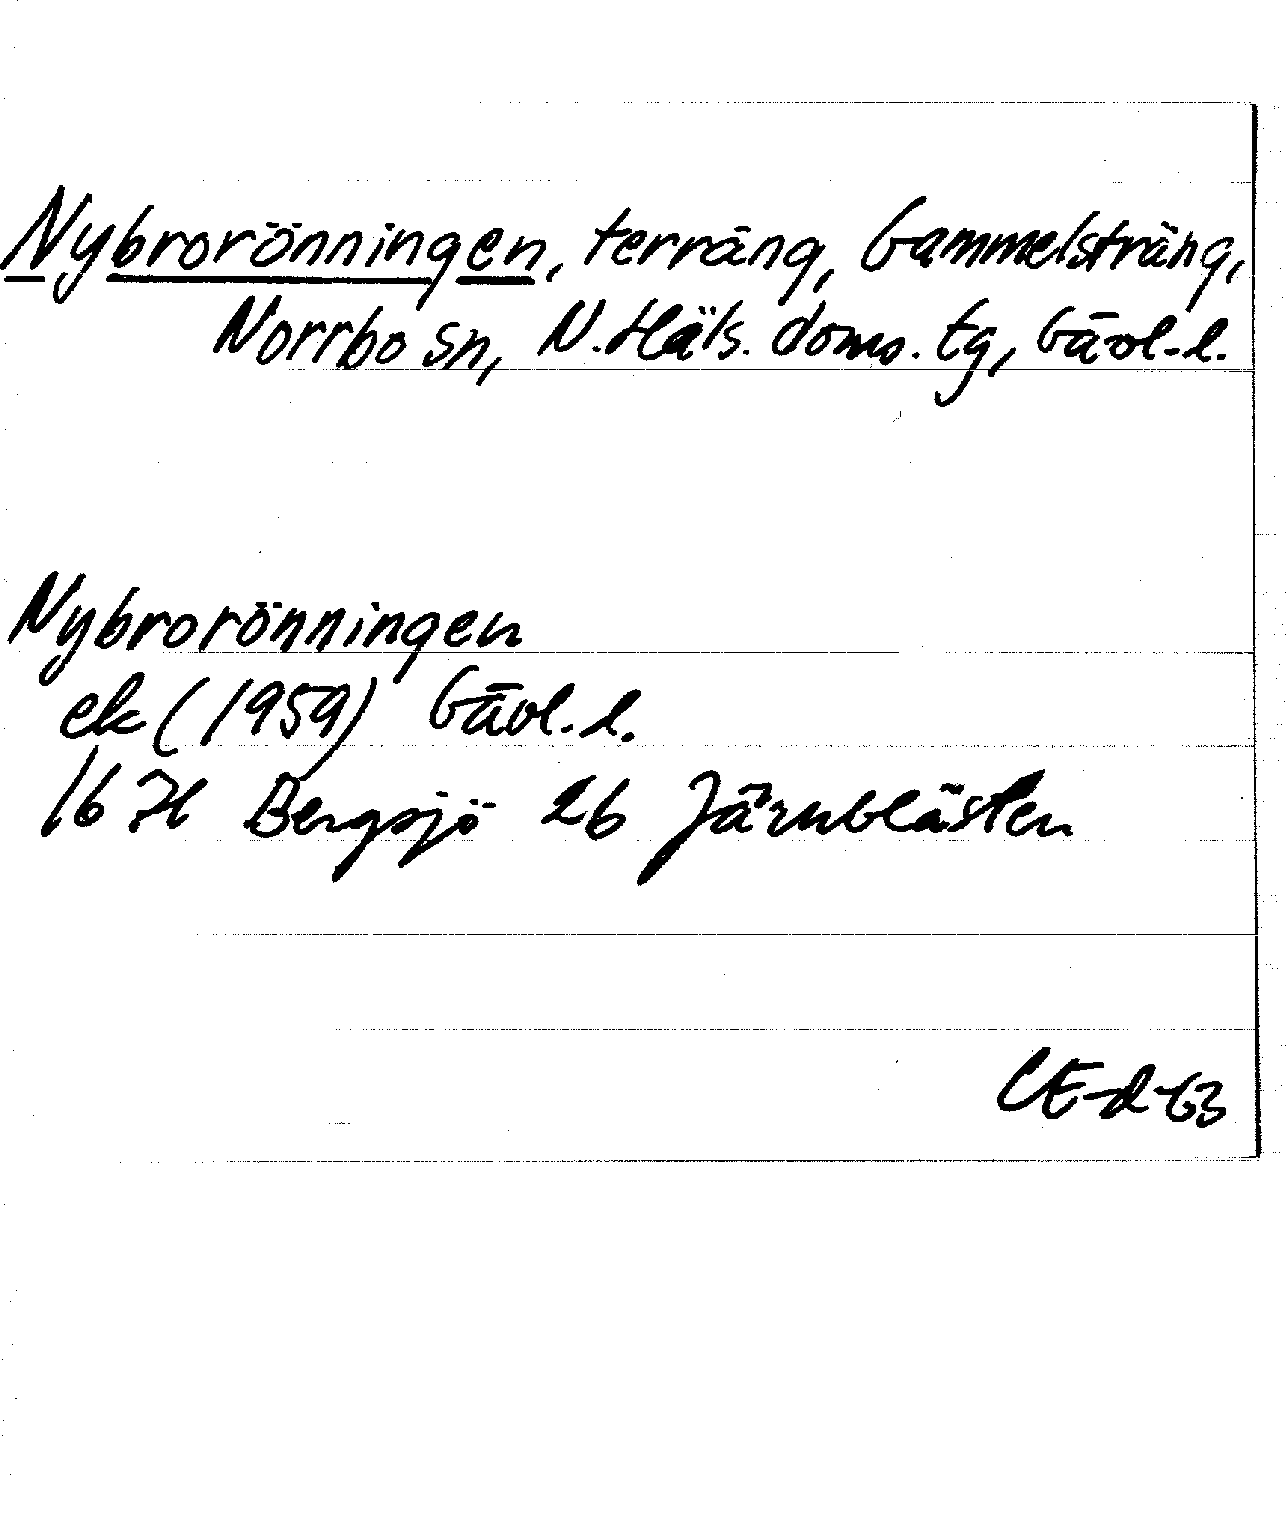 Nybrorönningen, terräng, Gammelsträng,
Norrbo sn, N. Häls. doms. tg, Gävl. l.
Nybrorönningen
ek (1959) Gävl. l.
16 H Bergsjö 2b Järnblästen
CE-d-63